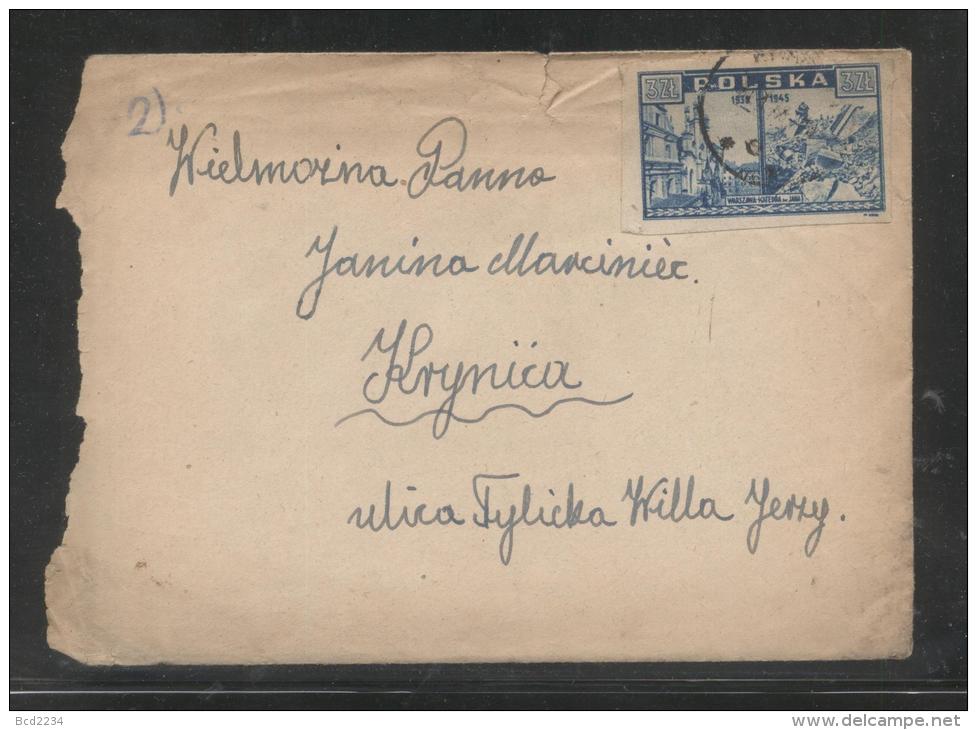 2)
3ZŁ POLSKA 3ZŁ
1939 1945
WARSZAWA-KATEDRA ŚW. JANA
Wielmożna Panna
Janina Marciniec.
Krynica
ulica Tylicka Willa Jerzy.
Bcd2234
www.delcampe.net